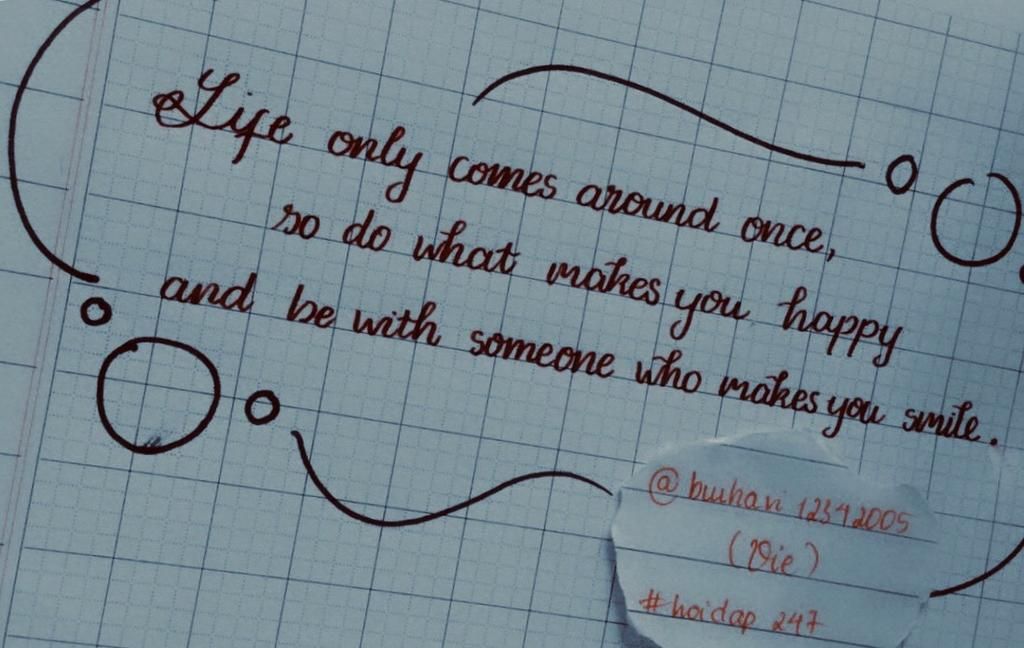 Life only comes around once,
so do what makes you happy
and be with someone who makes you smile.
@buihari 12342005
(Vie)
#hoidap 247